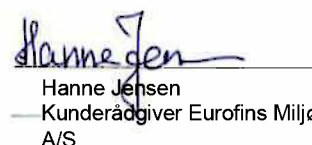 Hanne Jen
Hanne Jensen
Kunderådgiver Eurofins Miljø
A/S